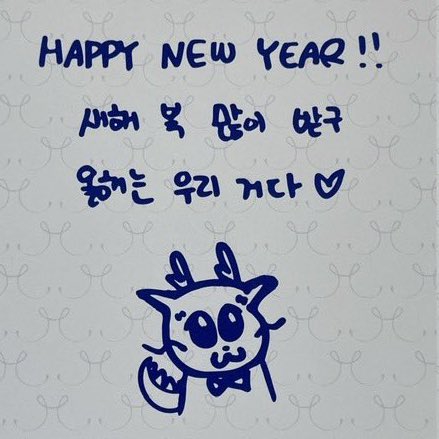 HAPPY NEW YEAR!!
새해 복 많이 받구
올해는 우리 거다 ♡